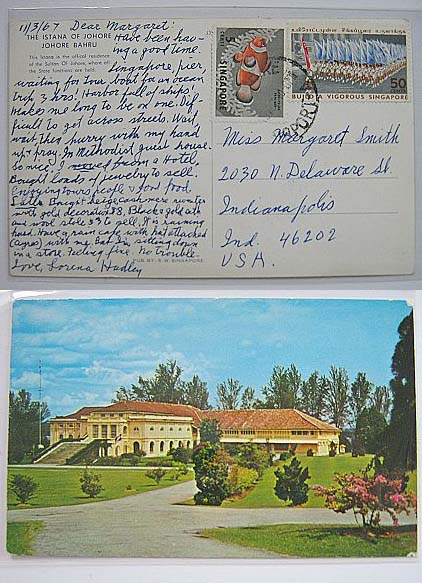 11/3/67 Dear Margaret:
THE ISTANA OF JOHORE
JOHORE BAHRU
This is the official residence
of the Sultan Of Johore, where all
the State functions are held.
Have been hav-
ing a good time.
Singapore pier,
waiting for boat for an ocean
trip 3 hrs! Harbor full of ships!
Makes me long to be on one. Dif-
ficult to get across streets. Wait,
wait then hurry with my hand
up & pray. In Methodist guest house.
So nice. I moved from a Hotel.
Bought loads of jewelry to sell.
Enjoying tours people & good food.
Bought beige cashmere sweater
with gold 8, Black & gold
one wool stole 3 to sell. It is raining
hard. Have a rain cape with hat attached
with me. But I'm sitting down
in a store. Feeling fine. No trouble.
Love, Lorena Hadley
PUB BY: S. W. SINGAPORE
5c
SINGAPORE
50
BUILD A VIGOROUS SINGAPORE
Miss Margaret Smith
2030 N. Delaware St.
Indianapolis
Ind. 46202
USA.